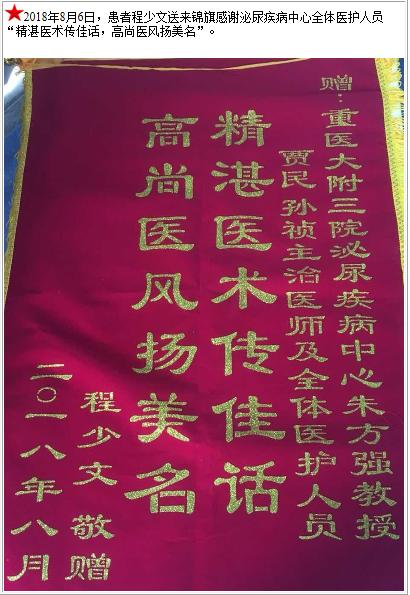 ★2018年8月6日，患者程少文送来锦旗感谢泌尿疾病中心全体医护人员
“精湛医术传佳话，高尚医风扬美名”。
赠：重医大附三院泌尿疾病中心朱方强教授
贾民 孙祯主治医师及全体医护人员
精湛医术传佳话
高尚医风扬美名
程少文 敬赠
二〇一八年八月